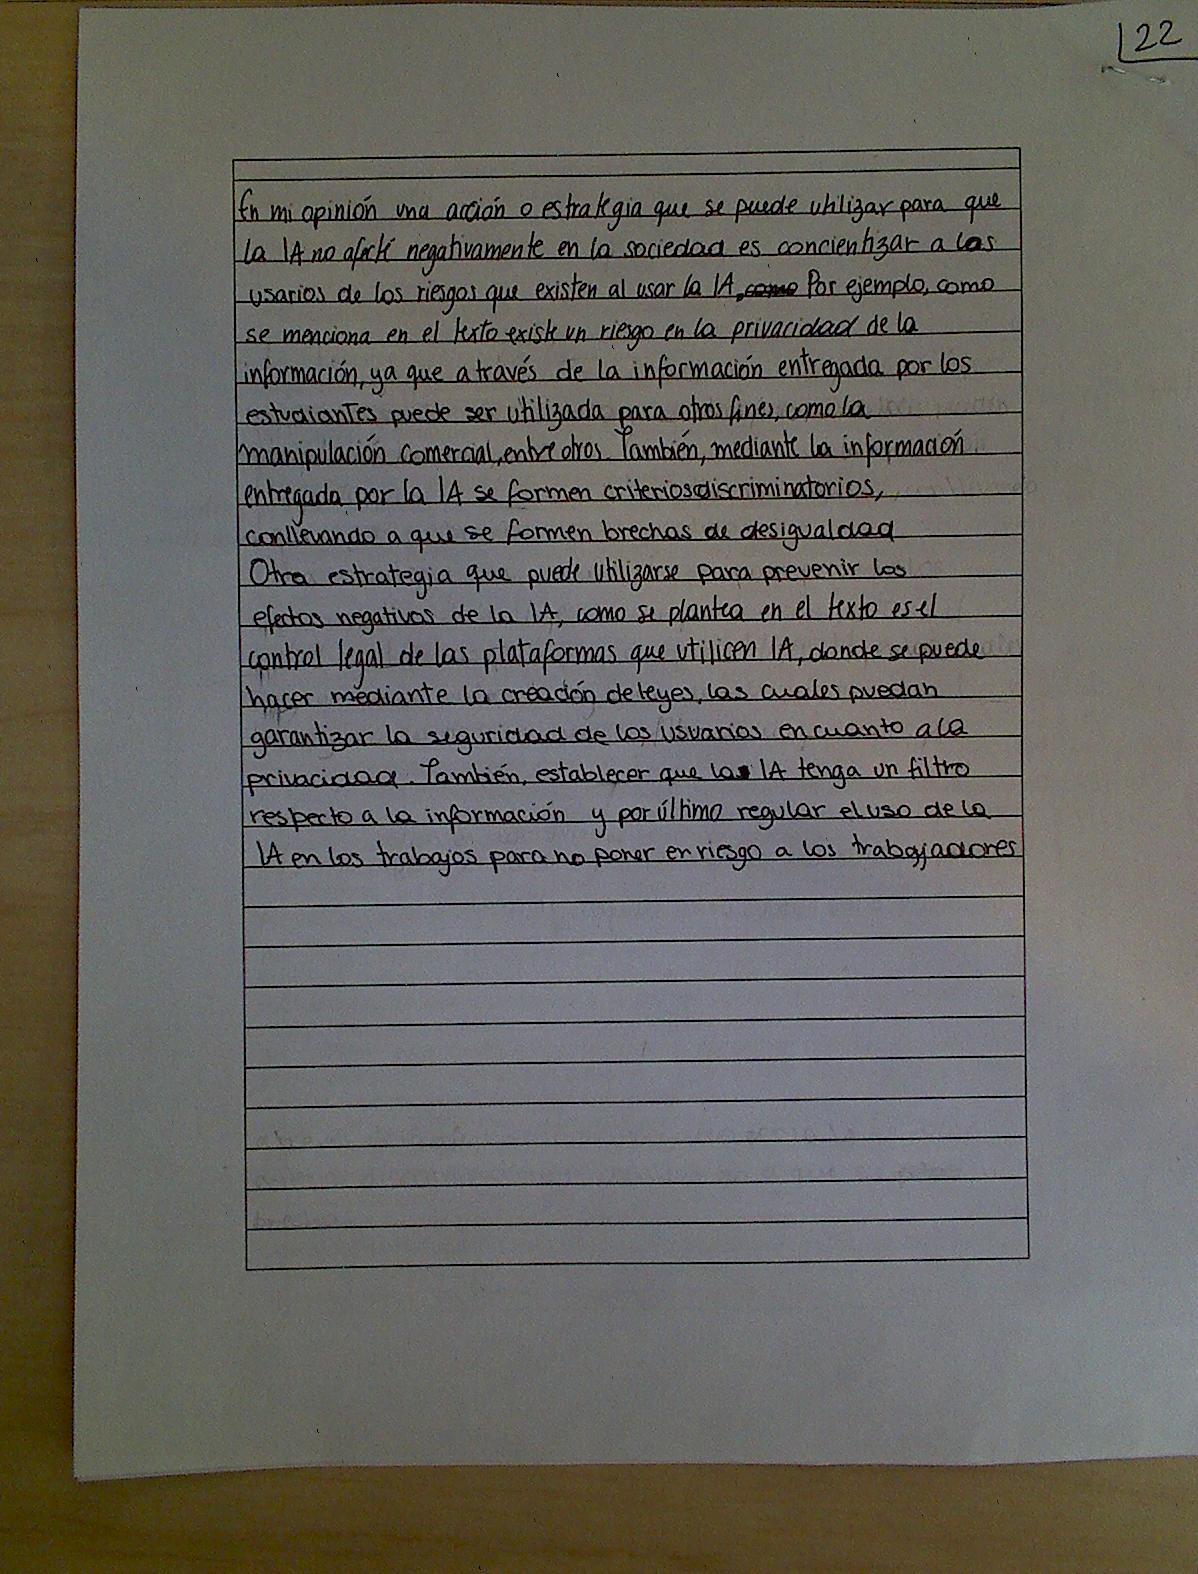 22
En mi opinión una acción o estrategia que se puede utilizar para que
la IA no afecte negativamente en la sociedad es concientizar a los
usarios de los riesgos que existen al usar la IA, como Por ejemplo, como
se menciona en el texto existe un riesgo en la privacidad de la
información, ya que a través de la información entregada por los
estudiantes puede ser utilizada para otros fines, como la
manipulación comercial, entre otros. También, mediante la información
entregada por la IA se formen criterios discriminatorios,
conllevando a que se formen brechas de desigualdad
Otra estrategia que puede utilizarse para prevenir los
efectos negativos de la IA, como se plantea en el texto es el
control legal de las plataformas que utilicen IA, donde se puede
hacer mediante la creación de leyes, las cuales puedan
garantizar la seguridad de los usuarios en cuanto a la
privacidad. También, establecer que la IA tenga un filtro
respecto a la información y por último regular el uso de la
IA en los trabajos para no poner en riesgo a los trabajadores